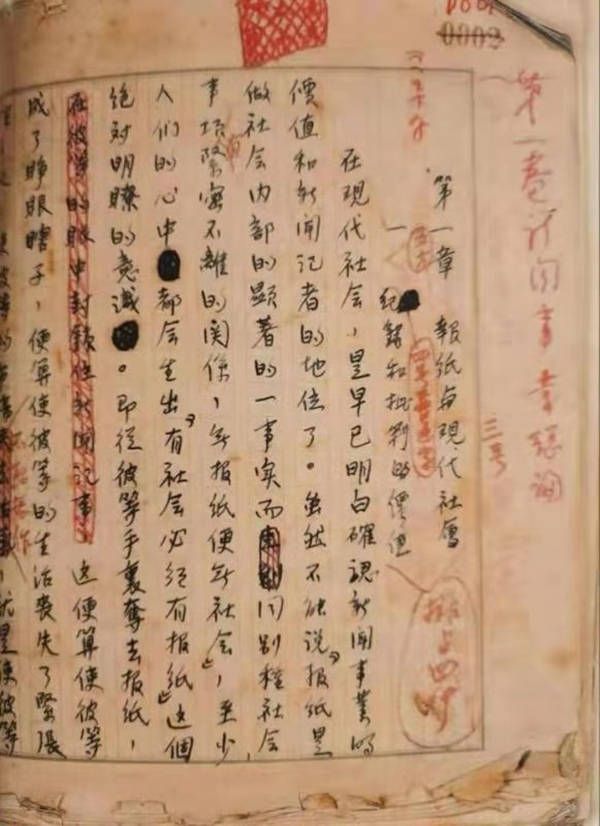 0002
第一卷新闻事業
三号
第一章 報紙与現代社會
一 紀錄和批判的價值
排占四行
在現代社会，是早已明白確認新聞事業的
價值和新聞记者的地位了。虽然不能说「报纸是
做社会内部的顕著的一事实而同别種社会
事項緊密不離的関係，無报纸便無社会」，至少
人们的心中都会生出「有社会必須有报纸」这個
绝对明瞭的意識。即從彼等手裏奪去报纸，
在彼等的眼中封鎖住新闻记事，这便算使彼等
成了睁眼瞎子，便算使彼等的生活喪失了緊張